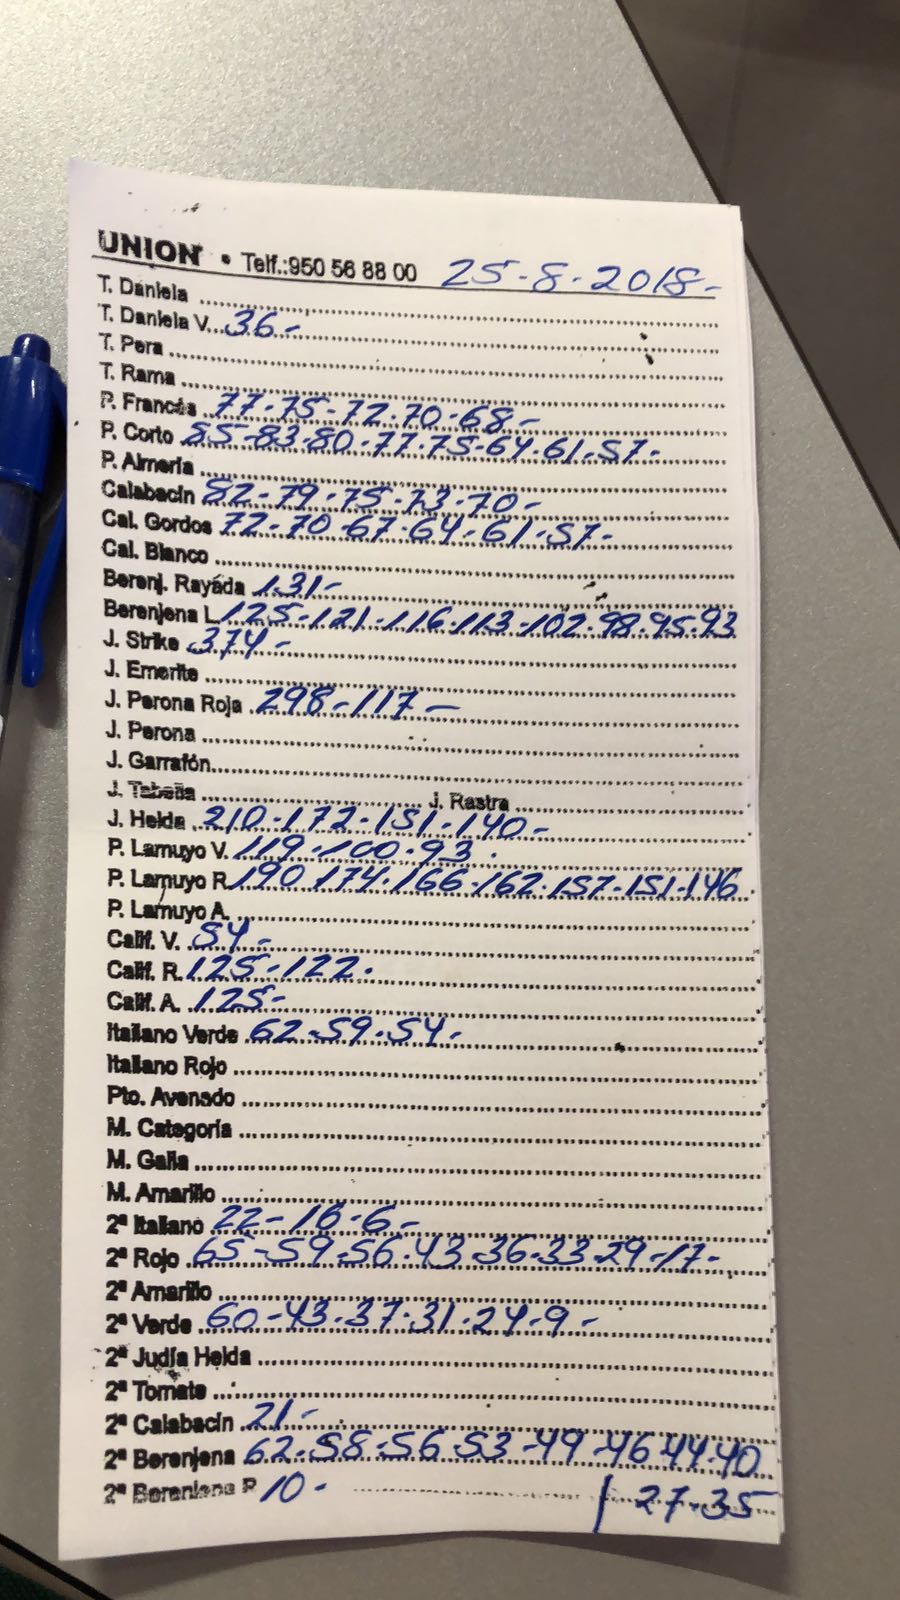 UNION • Telf.:950 56 88 00 25-8-2018-
T. Daniela
T. Daniela V. 36-
T. Pera
T. Rama
P. Francés 77-75-72-70-68-
P. Corto 85-83-80-77-75-64-61-57-
P. Almería
Calabacín 82-79-75-73-70-
Cal. Gordos 72-70-67-64-61-57-
Cal. Blanco
Berenj. Rayada 131-
Berenjena L. 125-121-116-113-102-98-95-93
J. Strike 374-
J. Emerite
J. Perona Roja 298-117-
J. Perona
J. Garrafón
J. Tabella J. Rastra
J. Helda 210-172-151-140-
P. Lamuyo V. 119-100-93.
P. Lamuyo R. 190-174-166-162-157-151-146
P. Lamuyo A.
Calif. V. 54-
Calif. R. 125-122-
Calif. A. 125-
Italiano Verde 62-59-54-
Italiano Rojo
Pto. Avenado
M. Categoría
M. Galia
M. Amarillo
2ª Italiano 22-16-6-
2ª Rojo 65-59-56-43-36-33-29-17-
2ª Amarillo
2ª Verde 60-43-37-31-24-9-
2ª Judía Helda
2ª Tomate
2ª Calabacín 21-
2ª Berenjena 62-58-56-53-49-46-44-40
2ª Berenjena R 10- 27-35